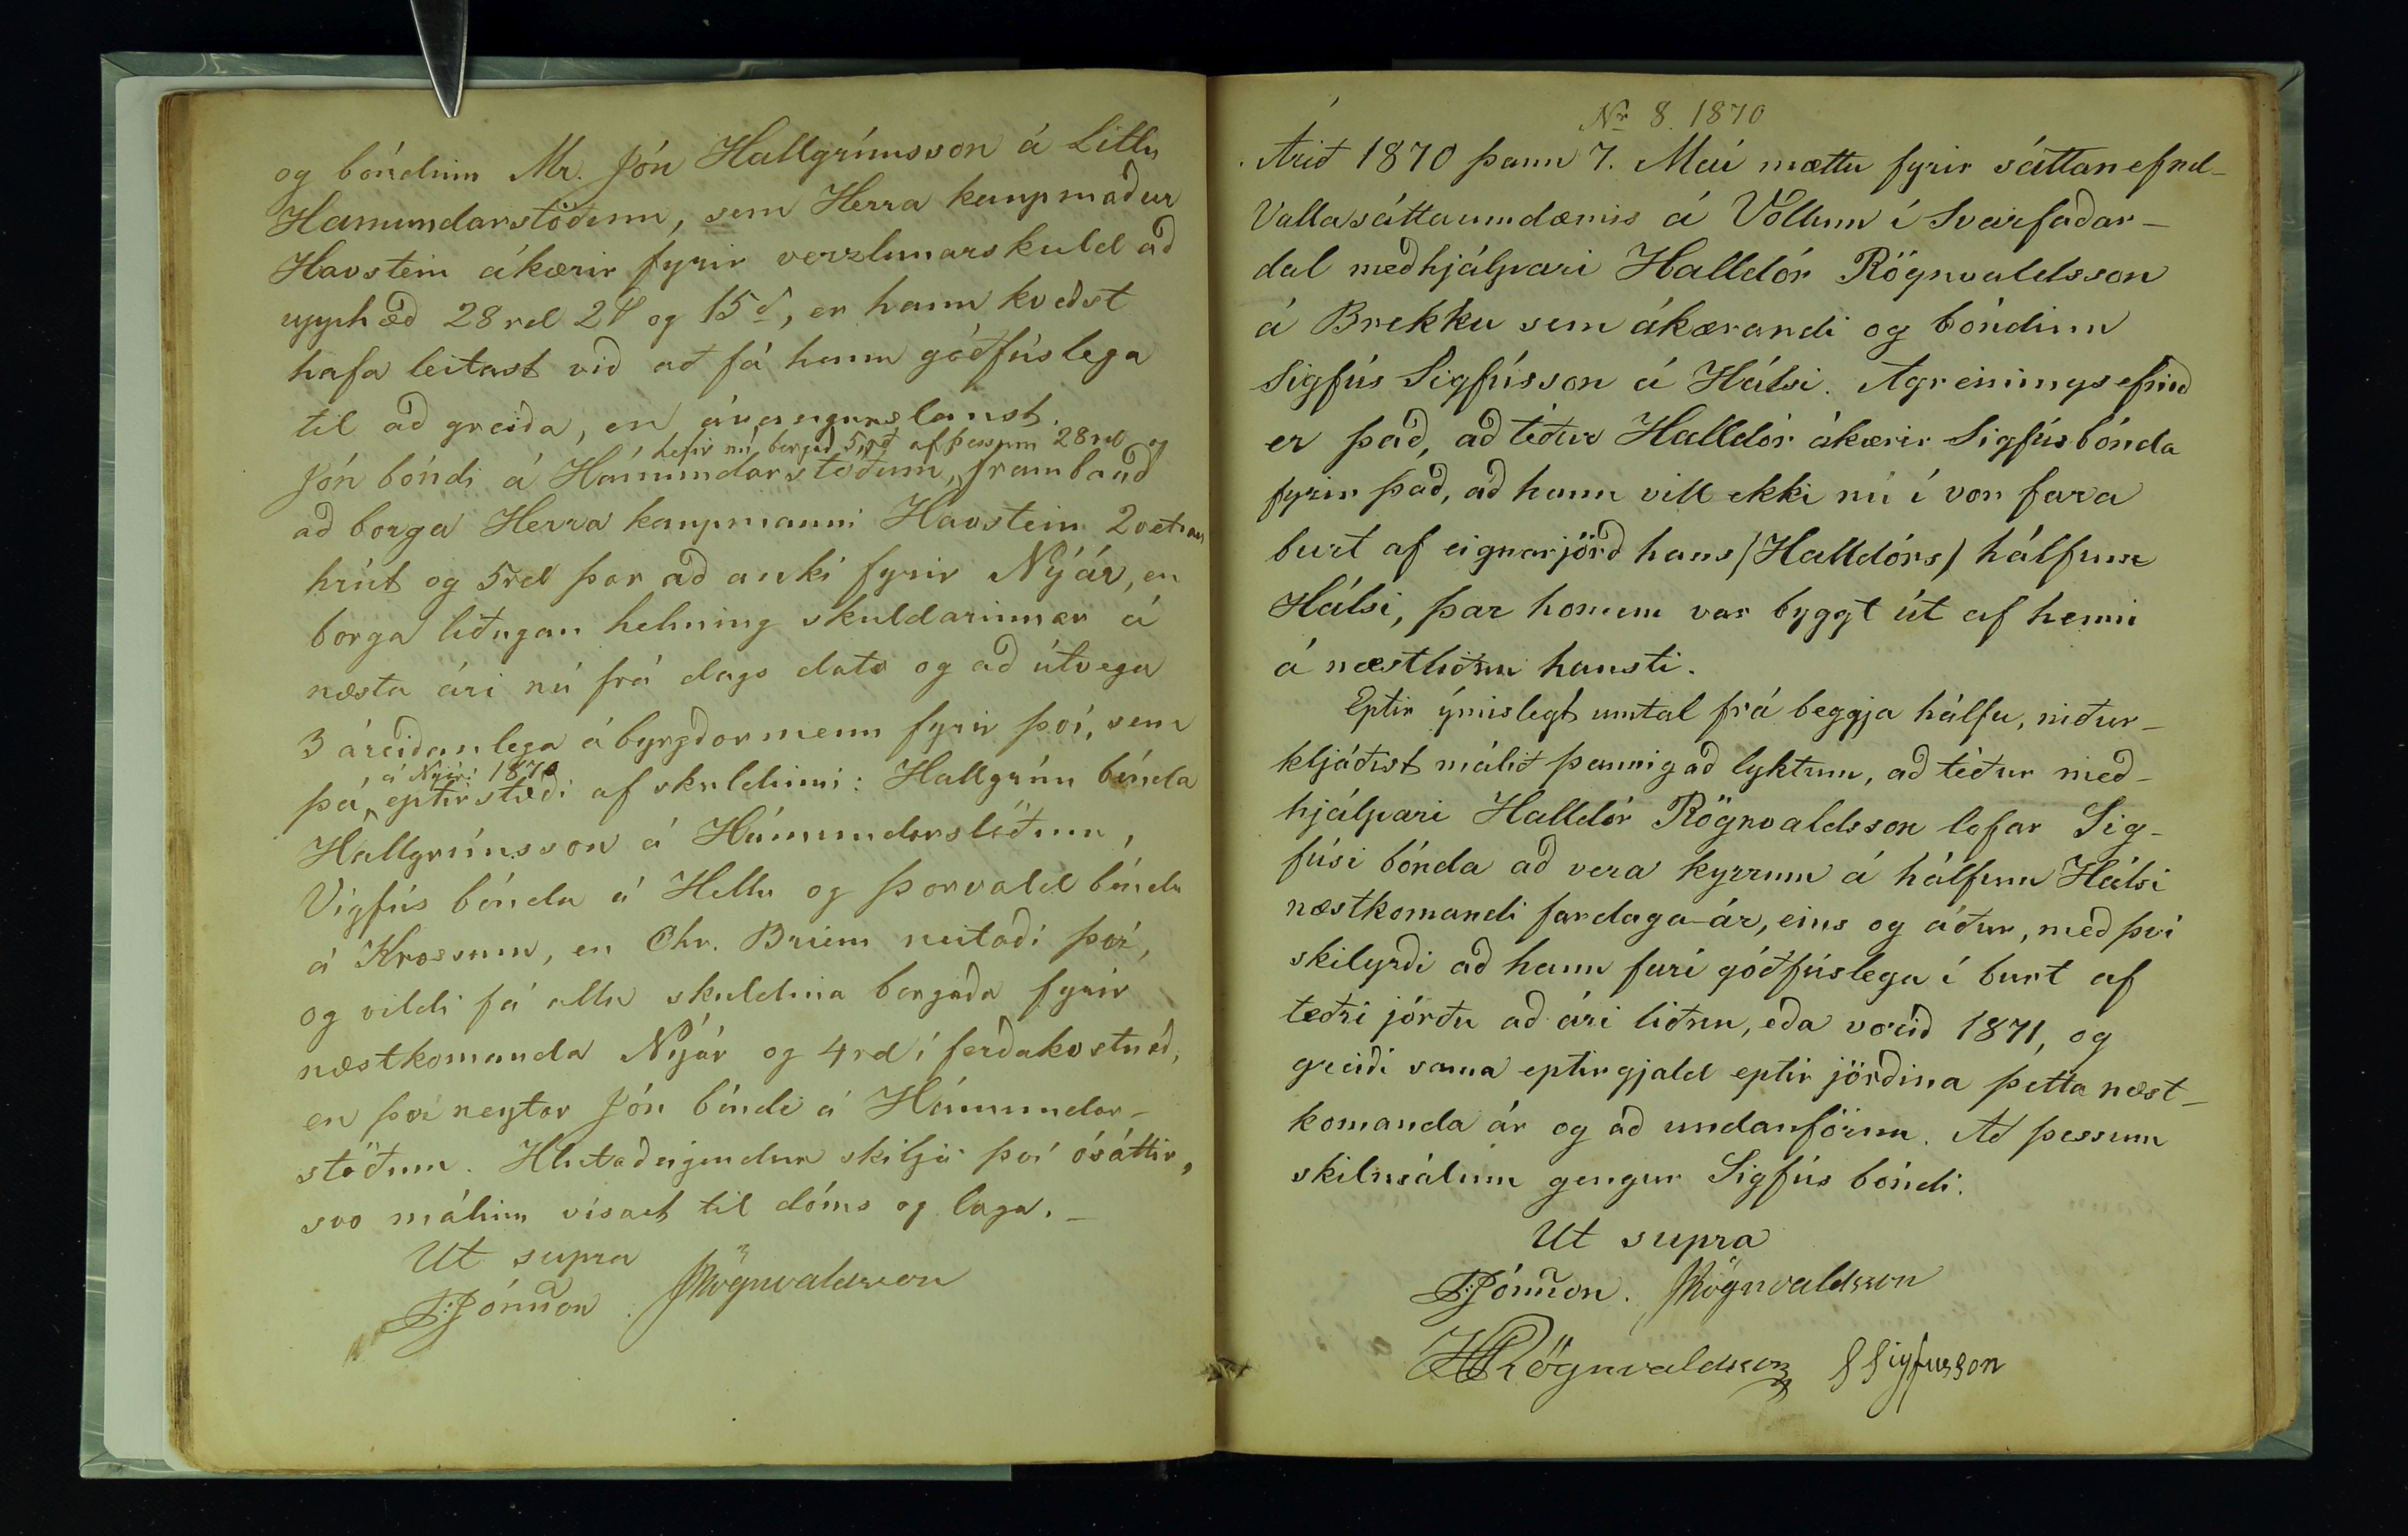 og bóndinn Mr. Jón Hallgrímsson á Litlu
Hamundarstöðum, sem Herra kaupmaður
Havstein ákærir fyrir verzlunarskuld að
upphæð 28 rd 2 og 15, er hann kveðst
hafa leitast við að fá hann góðfúslega
til að greiða, en árangurslaust.
hefir nú borgað 5rd af þessum 28 rd og
Jón bóndi á Hámundarstöðum, frambauð
að borga Herra kaupmanni Havstein 2vetran
hrút og 5rd þar að auki fyrir Nýár, en
borga liðugan helming skuldarinnar á
næsta ári nú frá dags dato og að útvega
3 áreiðanlega ábyrgðarmenn fyrir því, sem
, á Nýári 1870
þá eptirstæði af skuldinni: Hallgrím bónda
Hallgrímsson á Hámundarstöðum,
Vigfús bónda á Hellu og Þorvald bónda
á Krossum, en Chr. Briem neitaði því,
og vildi fá alla skuldina borgaða fyrir
næstkomanda Nýár og 4rd í ferðakostnað,
en því neytar Jón bóndi á Hámundar-
stöðum. Hlutaðeigendur skilja því ósáttir,
svo málinu vísast til dóms og laga. -
Ut supra
Jónsson. Rögnvaldsson
Nr 8. 1870
Árið 1870 þann 7. Maí mættu fyrir sáttanefnd
Vallasáttaumdæmis á Völlum í Svarfaðar-
dal meðhjálpari Halldór Rögnvaldsson
á Brekku sem ákærandi og bóndinn
Sigfús Sigfússon á Hálsi. Agreiningsefnið
er það, að téður Halldór ákærir Sigfús bónda
fyrir það, að hann vill ekki nú í vor fara
burt af eignarjörð hans /Halldórs/ hálfum
Hálsi, þar honum var byggt út af henni
á næstliðnu hausti.
Eptir ýmislegt umtal frá beggja hálfu, niður-
kljáðist málið þannig að lyktum, að téður með-
hjálpari Halldór Rögnvaldsson lofar Sig-
fúsi bónda að vera kyrrum á hálfum Hálsi
næstkomandi fardaga-ár, eins og áður, með því
skilyrði að hann fari góðfúslega í burt af
téðri jörðu að ári liðnu, eða vorið 1871, og
greiði sama eptirgjald eptir jörðina þetta næst-
komanda ár og að undanförnu. Að þessum
skilmálum gengur Sigfús bóndi.
Ut supra
Jónsson. Rögnvaldsson
HRögnvaldsson SSigfusson